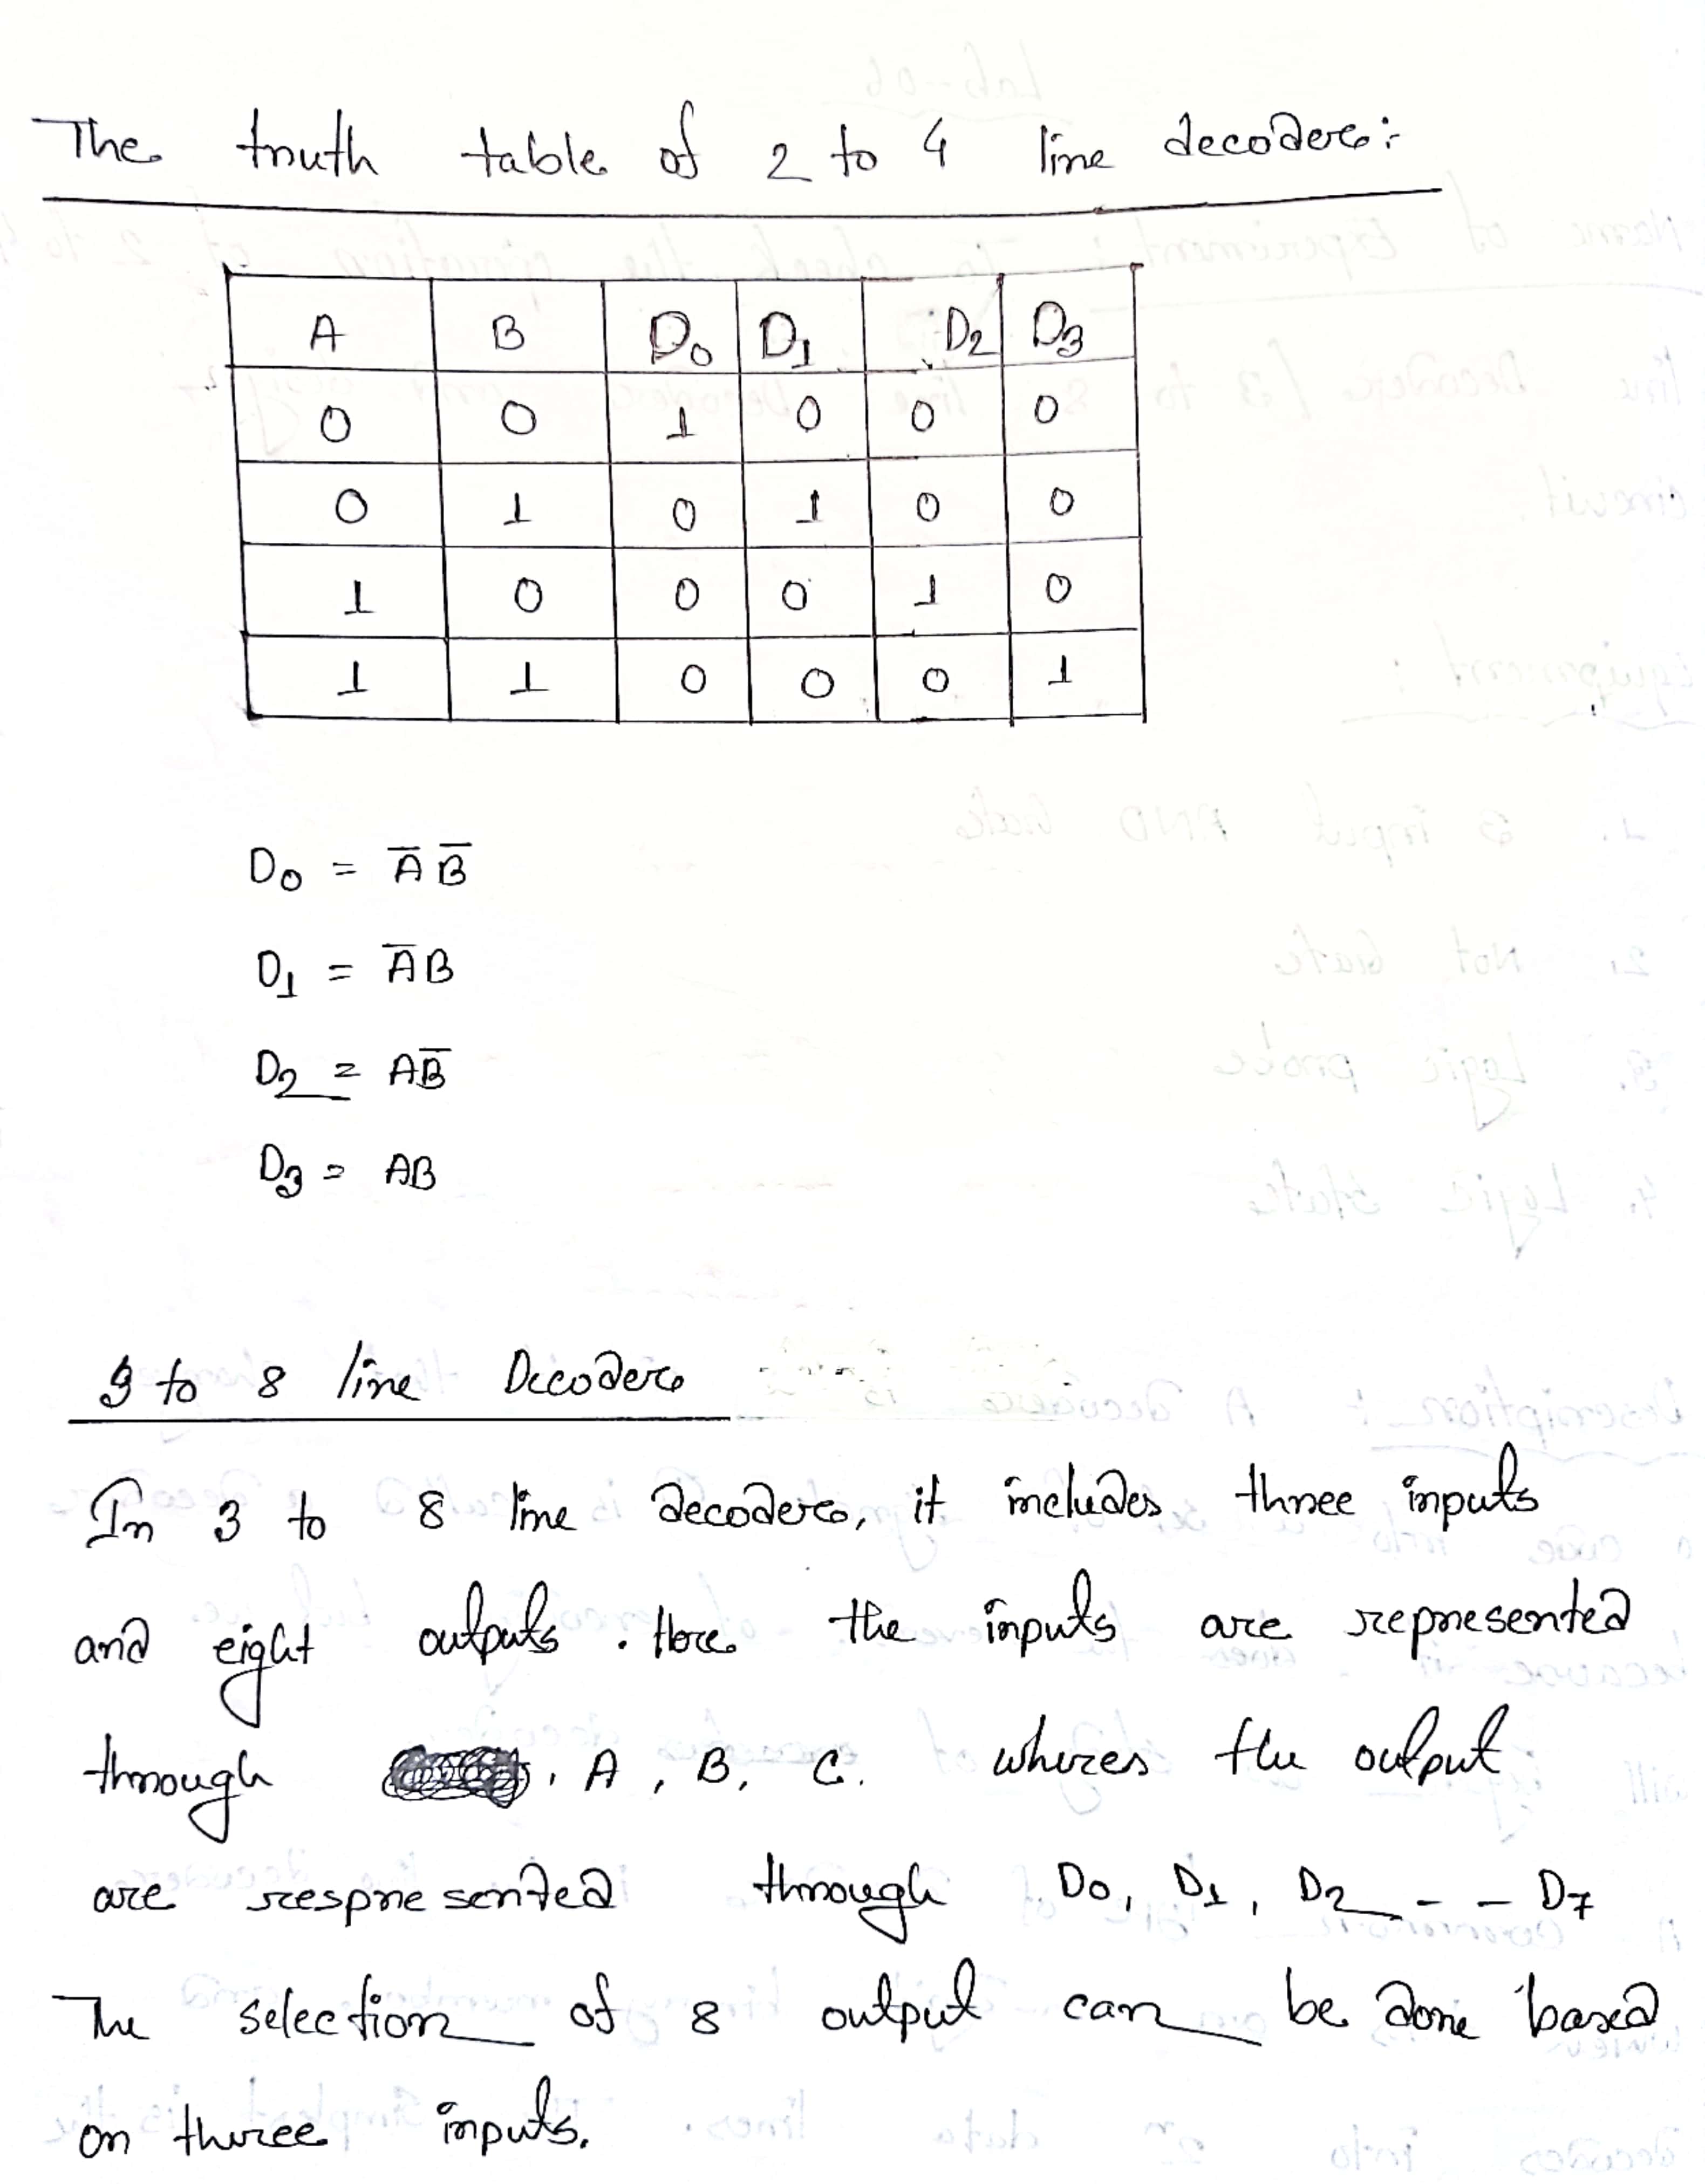 The truth table of 2 to 4 line decoder:
A B D0 D1 D2 D3
0 0 1 0 0 0
0 1 0 1 0 0
1 0 0 0 1 0
1 1 0 0 0 1
D0 = A̅ B̅
D1 = A̅B
D2 = AB̅
D3 = AB
3 to 8 line Decoder
In 3 to 8 line decoder, it includes three inputs
and eight outputs. Here the inputs are represented
through , A, B, C. wheres the output
are respresented through D0, D1, D2 - - D7
The selection of 8 output can be done based
on three inputs.